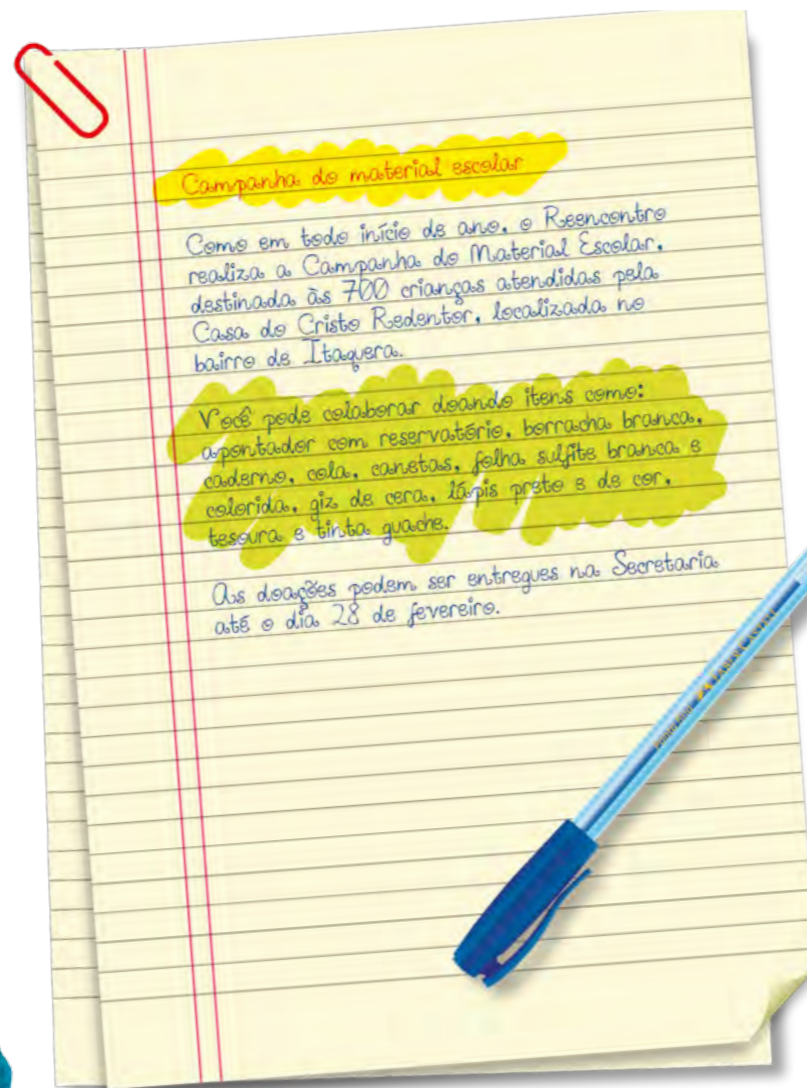 Campanha do material escolar
Como em todo início de ano, o Reencontro
realiza a Campanha do Material Escolar,
destinada às 700 crianças atendidas pela
Casa do Cristo Redentor, localizada no
bairro de Itaquera.
Você pode colaborar doando itens como:
apontador com reservatório, borracha branca,
caderno, cola, canetas, folha sulfite branca e
colorida, giz de cera, lápis preto e de cor,
tesoura e tinta guache.
As doações podem ser entregues na Secretaria
até o dia 28 de fevereiro.